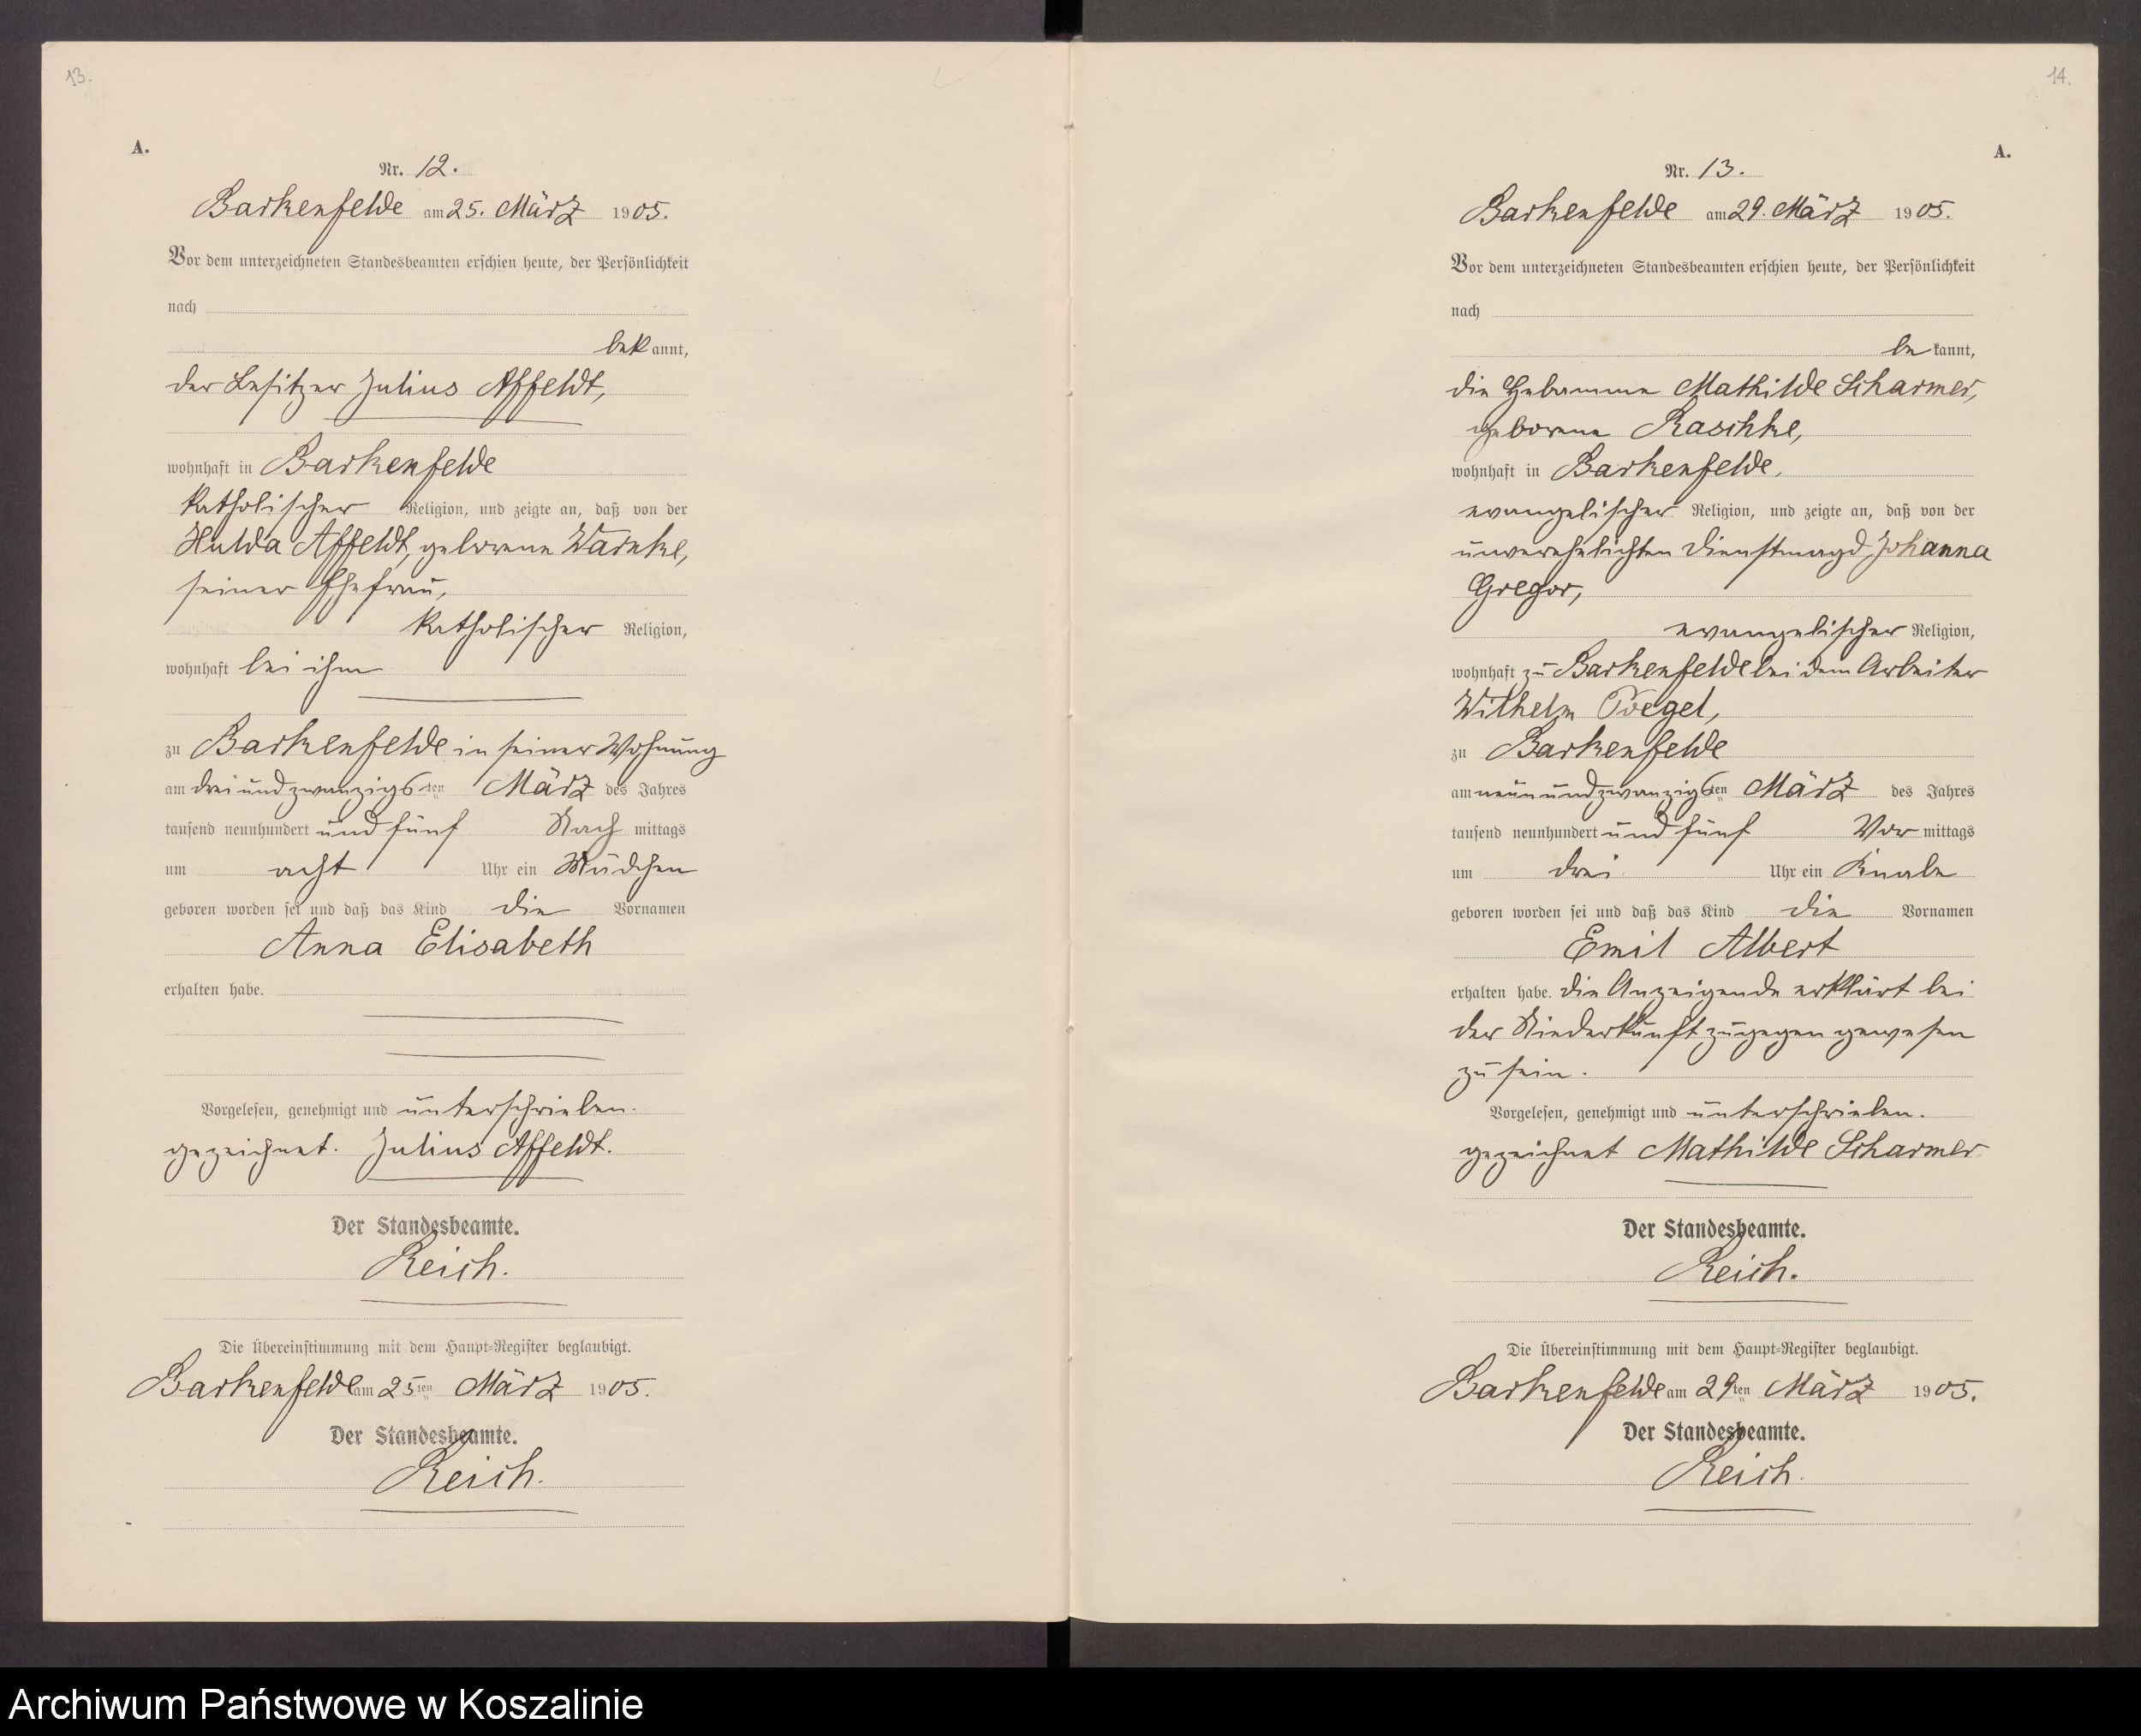 13.
A.
Nr. 12.
Barkenfelde am 25. März 1905.
Vor dem unterzeichneten Standesbeamten erschien heute, der Persönlichkeit
nach
bekannt,
der Besitzer Julius Affeldt,
wohnhaft in Barkenfelde
katholischer Religion, und zeigte an, daß von der
Hulda Affeldt, geborene Warnke,
seiner Ehefrau,
katholischer Religion,
wohnhaft bei ihm
zu Barkenfelde in seiner Wohnung
am dreiundzwanzigsten März des Jahres
tausend neunhundert und fünf Nachmittags
um acht Uhr ein Mädchen
geboren worden sei und daß das Kind die Vornamen
Anna Elisabeth
erhalten habe.
Vorgelesen, genehmigt und unterschrieben.
gezeichnet. Julius Affeldt.
Der Standesbeamte.
Reich.
Die Übereinstimmung mit dem Haupt-Register beglaubigt.
Barkenfelde am 25ten März 1905.
Der Standesbeamte.
Reich.
14.
A.
Nr. 13.
Barkenfelde am 29. März 1905.
Vor dem unterzeichneten Standesbeamten erschien heute, der Persönlichkeit
nach
bekannt,
die Hebamme Mathilde Scharmer,
geborene Raschke,
wohnhaft in Barkenfelde,
evangelischer Religion, und zeigte an, daß von der
unverehelichten Dienstmagd Johanna
Gregor,
evangelischer Religion,
wohnhaft zu Barkenfelde bei dem Arbeiter
Wilhelm
zu Barkenfelde
am neunundzwanzigsten März des Jahres
tausend neunhundert und fünf Vormittags
um drei Uhr ein Knabe
geboren worden sei und daß das Kind die Vornamen
Emil Albert
erhalten habe. Die Anzeigende erklärt bei
der Niederkunft zugegen gewesen
zu sein.
Vorgelesen, genehmigt und unterschrieben.
gezeichnet Mathilde Scharmer
Der Standesbeamte.
Reich.
Die Übereinstimmung mit dem Haupt-Register beglaubigt.
Barkenfelde am 29ten März 1905.
Der Standesbeamte.
Reich.
Archiwum Państwowe w Koszalinie